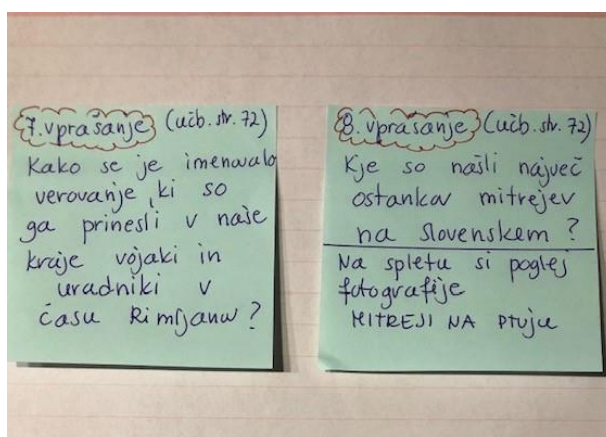 7. vprašanje (učb. str. 72)
Kako se je imenovalo
verovanje, ki so
ga prinesli v naše
kraje vojaki in
uradniki v
času Rimljanov?
8. vprašanje (učb. str. 72)
Kje so našli največ
ostankov mitrejev
na slovenskem?
Na spletu si poglej
fotografije
MITREJI NA PTUJU